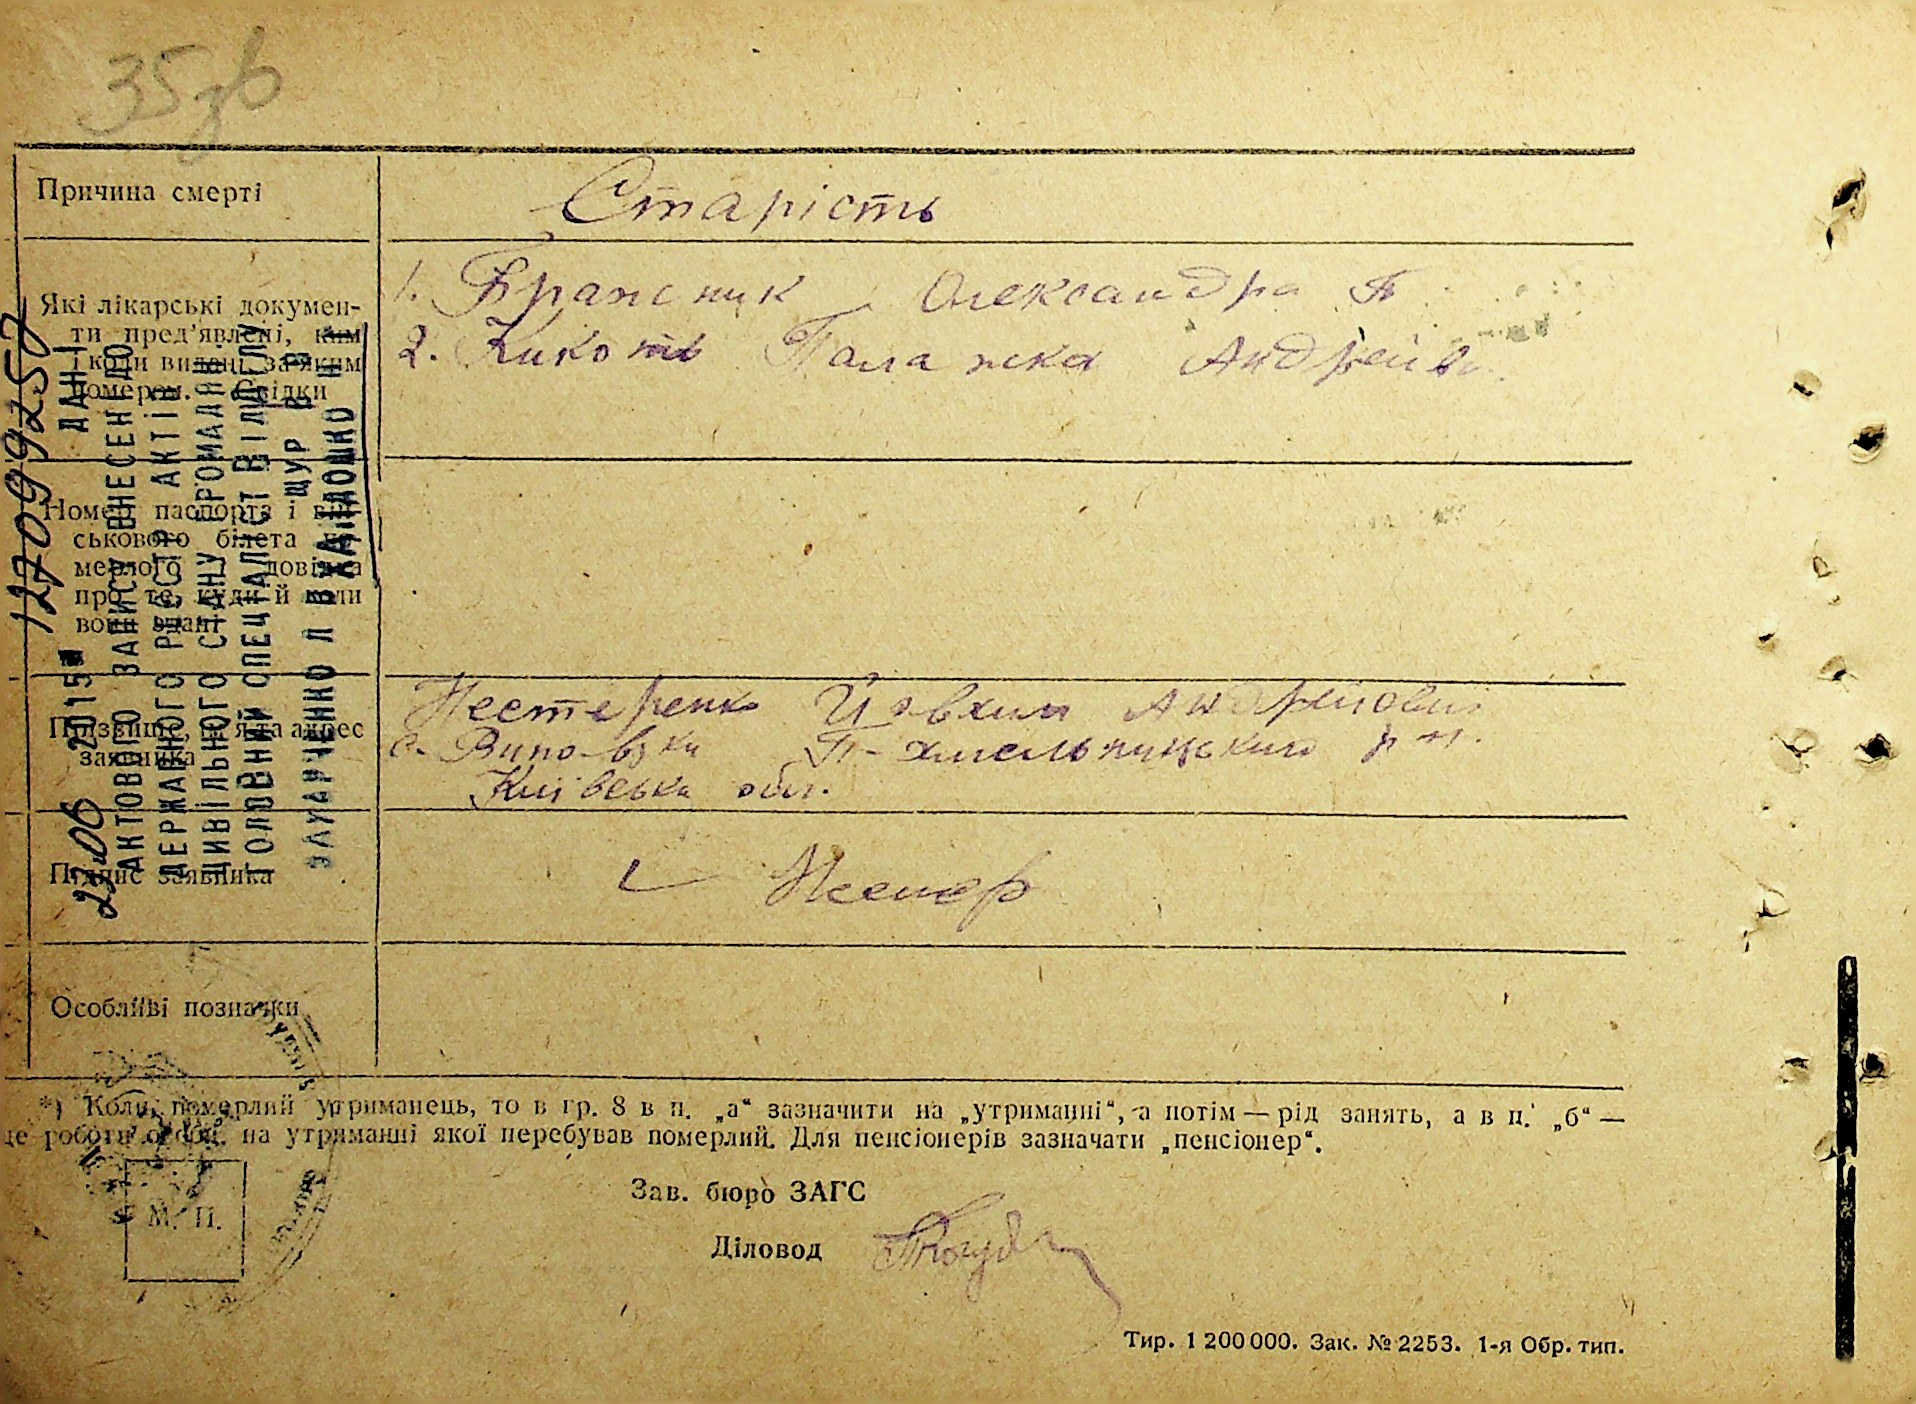 35 зв
Причина смерті
Старість
Які лікарські докумен-
ти пред'явлені, ким
і коли видані, за яким
номером. Свідки
1. Олександра П
2. Кикоть Палажка Андріївн
Номер паспорта і вій-
ськового білета по-
мерлого і довідка
про те, куди й коли
вони здані
Прізвище, ім'я та адрес
заявника
Нестеренко Йовхим Андрійович
с. П-Хмельницького р-н.
Київська обл.
Підпис заявника
Нестер
Особливі позначки
*) Коли померлий утриманець, то в гр. 8 в п. „а“ зазначити на „утриманні“, а потім — рід занять, а в п. „б“ —
це роботи особи, на утриманні якої перебував померлий. Для пенсіонерів зазначати „пенсіонер“.
М. П.
Зав. бюро ЗАГС
Діловод
Тир. 1 200 000. Зак. № 2253. 1-я Обр. тип.
12709925
23.06 2015
ДАНІ
АКТОВОГО ЗАПИСУ ВНЕСЕНІ ДО
ДЕРЖАВНОГО РЕЄСТРУ АКТІВ
ЦИВІЛЬНОГО СТАНУ ГРОМАДЯН
ГОЛОВНИЙ СПЕЦІАЛІСТ ВІДДІЛУ
ЩУР В В
ЗАХАРЧЕНКО Л В ХАЙДОШКО Н